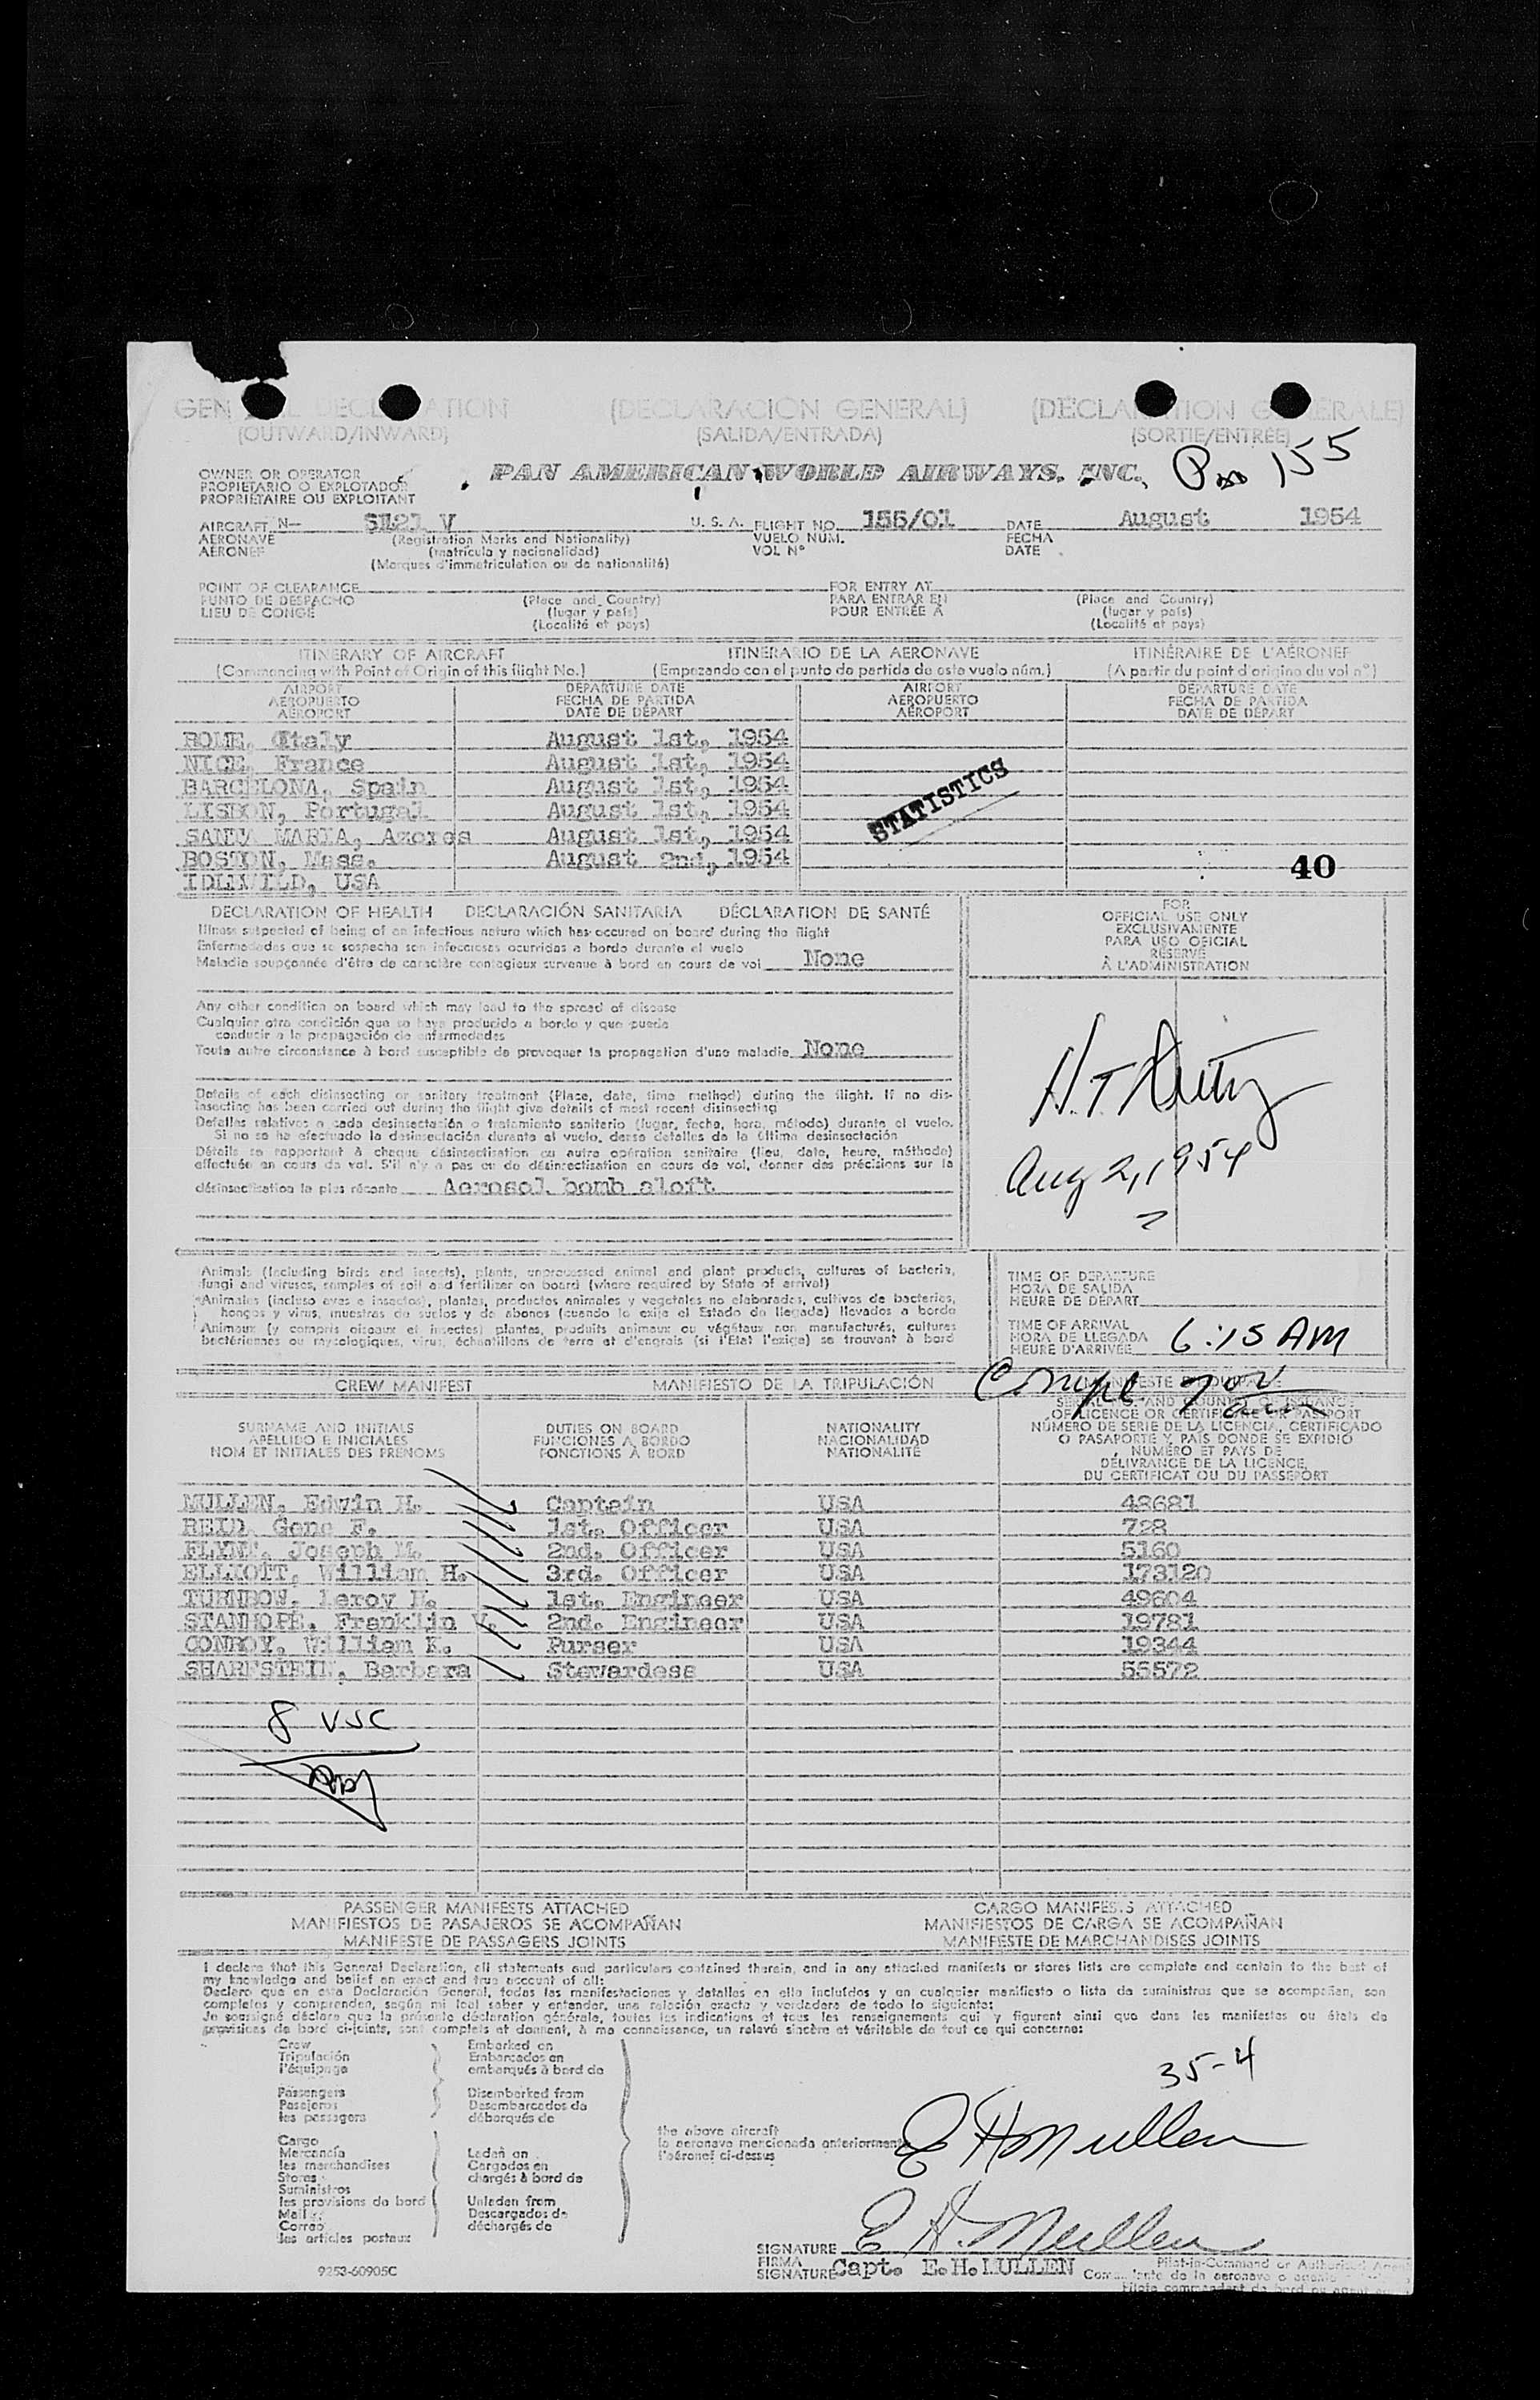 (DECLARACIÓN GENERAL)
(OUTWARD/INWARD) (SALIDA/ENTRADA) (SORTIE/ENTRÉE)
155
OWNER OR OPERATOR
PROPIETARIO O EXPLOTADOR
PROPRIÉTAIRE OU EXPLOITANT
PAN AMERICAN WORLD AIRWAYS, INC.
AIRCRAFT N— V U. S. A. FLIGHT NO. 155/01 DATE August 1954
AERONAVE (Registration Marks and Nationality) VUELO NÚM. FECHA
AÉRONEF (matrícula y nacionalidad) VOL N° DATE
(Marques d'immatriculation ou de nationalité)
POINT OF CLEARANCE FOR ENTRY AT
PUNTO DE DESPACHO (Place and Country) PARA ENTRAR EN (Place and Country)
LIEU DE CONGÉ (lugar y país) POUR ENTRÉE À (lugar y país)
(Localité et pays) (Localité et pays)
ITINERARY OF AIRCRAFT ITINERARIO DE LA AERONAVE ITINÉRAIRE DE L'AÉRONEF
(Commencing with Point of Origin of this flight No.) (Empezando con el punto de partida de este vuelo núm.) (A partir du point d'origine du vol n°)
AIRPORT DEPARTURE DATE AIRPORT DEPARTURE DATE
AEROPUERTO FECHA DE PARTIDA AEROPUERTO FECHA DE PARTIDA
AÉROPORT DATE DE DÉPART AÉROPORT DATE DE DÉPART
ROME, Italy August 1st, 1954
NICE, France August 1st, 1954
BARCELONA, Spain August 1st, 1954
LISBON, Portugal August 1st, 1954
SANTA MARIA, Azores August 1st, 1954
BOSTON, Mass. August 2nd, 1954
IDLEWILD, USA
STATISTICS
40
DECLARATION OF HEALTH DECLARACIÓN SANITARIA DÉCLARATION DE SANTÉ
Illness suspected of being of an infectious nature which has occured on board during the flight
Enfermedades que se sospecha son infecciosas ocurridas a bordo durante el vuelo
Maladie soupçonnée d'être de caractère contagieux survenue à bord en cours de vol None
Any other condition on board which may lead to the spread of disease
Cualquier otra condición que se haya producido a bordo y que pueda
conducir a la propagación de enfermedades
Toute autre circonstance à bord susceptible de provoquer la propagation d'une maladie None
Details of each disinsecting or sanitary treatment (Place, date, time method) during the flight. If no dis-
insecting has been carried out during the flight give details of most recent disinsecting
Detalles relativos a cada desinsectación o tratamiento sanitario (lugar, fecha, hora, método) durante el vuelo.
Si no se ha efectuado la desinsectación durante el vuelo, dense detalles de la última desinsectación
Détails se rapportant à chaque désinsectisation ou autre opération sanitaire (lieu, date, heure, méthode)
effectuée en cours de vol. S'il n'y a pas eu de désinsectisation en cours de vol, donner des précisions sur la
désinsectisation la plus récente Aerosol bomb aloft
FOR
OFFICIAL USE ONLY
EXCLUSIVAMENTE
PARA USO OFICIAL
RÉSERVÉ
À L'ADMINISTRATION
Aug 2, 1954
Animals (including birds and insects), plants, unprocessed animal and plant products, cultures of bacteria,
fungi and viruses, samples of soil and fertilizer on board (where required by State of arrival)
Animales (incluso aves e insectos), plantas, productos animales y vegetales no elaborados, cultivos de bacterias,
hongos y virus, muestras de suelos y de abonos (cuando lo exija el Estado de llegada) llevados a bordo
Animaux (y compris oiseaux et insectes) plantes, produits animaux ou végétaux non manufacturés, cultures
bactériennes ou mycologiques, virus, échantillons de terre et d'engrais (si l'Etat l'exige) se trouvant à bord
TIME OF DEPARTURE
HORA DE SALIDA
HEURE DE DÉPART
TIME OF ARRIVAL
HORA DE LLEGADA
HEURE D'ARRIVÉE 6:15 AM
CREW MANIFEST MANIFIESTO DE LA TRIPULACIÓN
SURNAME AND INITIALS DUTIES ON BOARD NATIONALITY
APELLIDO E INICIALES FUNCIONES A BORDO NACIONALIDAD
NOM ET INITIALES DES PRÉNOMS FONCTIONS À BORD NATIONALITÉ
OF LICENCE OR CERTIFICATE OR PASSPORT
NÚMERO DE SERIE DE LA LICENCIA, CERTIFICADO
O PASAPORTE Y PAÍS DONDE SE EXPIDIÓ
NUMÉRO ET PAYS DE
DÉLIVRANCE DE LA LICENCE,
DU CERTIFICAT OU DU PASSEPORT
MULLEN, Edwin H. Captain USA 48681
REID, Gene F. 1st. Officer USA 728
FLYNN, Joseph M. 2nd. Officer USA 5160
ELLIOTT, William H. 3rd. Officer USA 173120
TURNBOW, Leroy H. 1st. Engineer USA 49604
STANHOPE, Franklin V. 2nd. Engineer USA 19781
CONROY, William K. Purser USA 19344
SHARFSTEIN, Barbara Stewardess USA 55572
8 USC
PASSENGER MANIFESTS ATTACHED CARGO MANIFESTS ATTACHED
MANIFIESTOS DE PASAJEROS SE ACOMPAÑAN MANIFIESTOS DE CARGA SE ACOMPAÑAN
MANIFESTE DE PASSAGERS JOINTS MANIFESTE DE MARCHANDISES JOINTS
I declare that this General Declaration, all statements and particulars contained therein, and in any attached manifests or stores lists are complete and contain to the best of
my knowledge and belief an exact and true account of all:
Declaro que en esta Declaración General, todas las manifestaciones y detalles en ella incluídos y en cualquier manifiesto o lista de suministros que se acompañan, son
completos y comprenden, según mi leal saber y entender, una relación exacta y verdadera de todo lo siguiente:
Je soussigné déclare que la présente déclaration générale, toutes les indications et tous les renseignements qui y figurent ainsi que dans les manifestes ou états de
provisions de bord ci-joints, sont complets et donnent, à ma connaissance, un relevé sincère et véritable de tout ce qui concerne:
Crew Embarked on
Tripulación Embarcados en
l'équipage embarqués à bord de
Passengers Disembarked from
Pasajeros Desembarcados de
les passagers débarqués de
Cargo
Mercancía Laden on
les marchandises Cargados en
Stores chargés à bord de
Suministros
les provisions de bord Unladen from
Mail Descargados de
Correo déchargés de
les articles postaux
the above aircraft
la aeronave mencionada anteriormente
l'aéronef ci-dessus
35-4
E H Mullen
E. H. Mullen
SIGNATURE
FIRMA
SIGNATURE Capt. E.H. MULLEN
Pilot-in-Command or Authorized Agent
9253-60905C